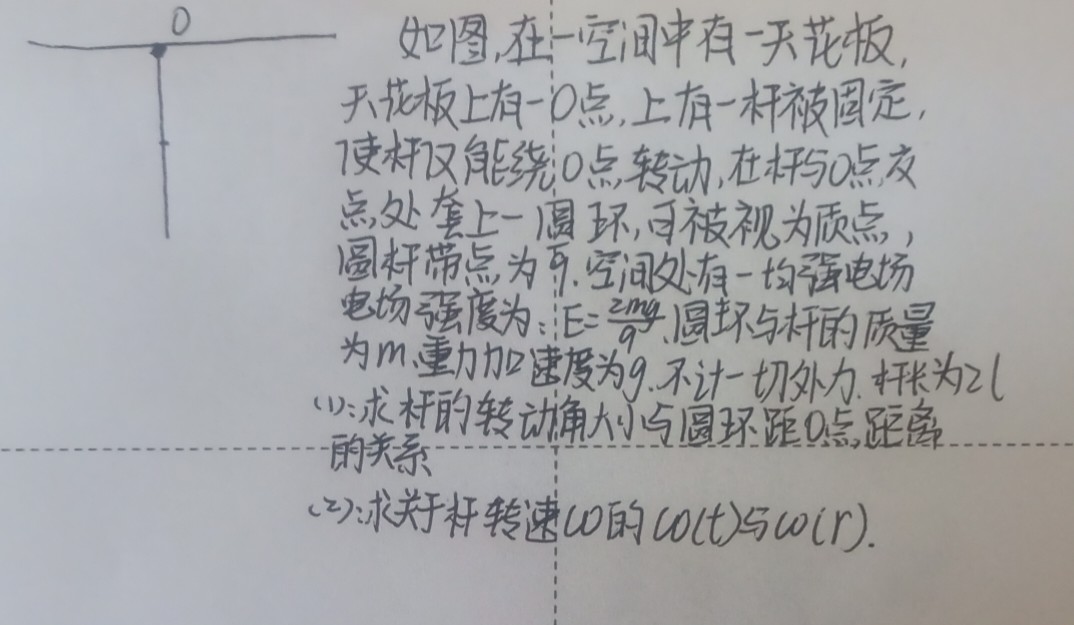 O
如图,在一空间中有一天花板,
天花板上有一O点,上有一杆被固定,
使杆仅能绕O点转动,在杆与O点交
点处套上一圆环,可被视为质点,
圆杆带点为q.空间处有一均强电场
电场强度为:E=2mg/q.圆环与杆的质量
为m.重力加速度为g.不计一切外力.杆长为2l
(1):求杆的转动角大小与圆环距O点距离
的关系
(2):求关于杆转速ω的ω(t)与ω(r).